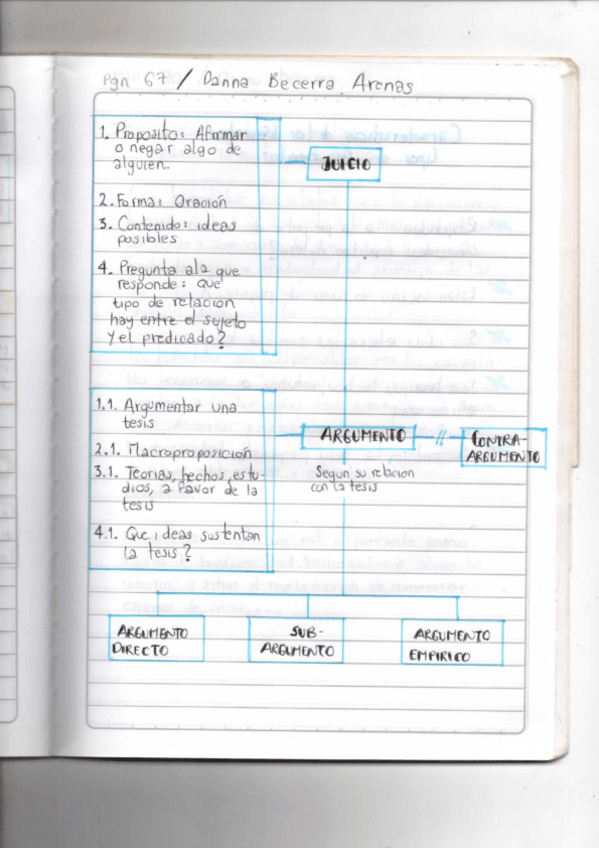 Pgn 67 / Danna Becerra Arenas
1. Proposito: Afirmar
o negar algo de
alguien.
JUICIO
2. Forma: Oración
3. Contenido: ideas
posibles
4. Pregunta ala que
responde: que
tipo de relacion
hay entre el sujeto
y el predicado?
1.1. Argumentar una
tesis
2.1. Macroproposición
3.1. Teorias, hechos, estu-
dios, a favor de la
tesis
4.1. Que ideas sustentan
la tesis?
ARGUMENTO
//
CONTRA-
ARGUMENTO
Segun su relacion
con la tesis
ARGUMENTO
DIRECTO
SUB-
ARGUMENTO
ARGUMENTO
EMPIRICO